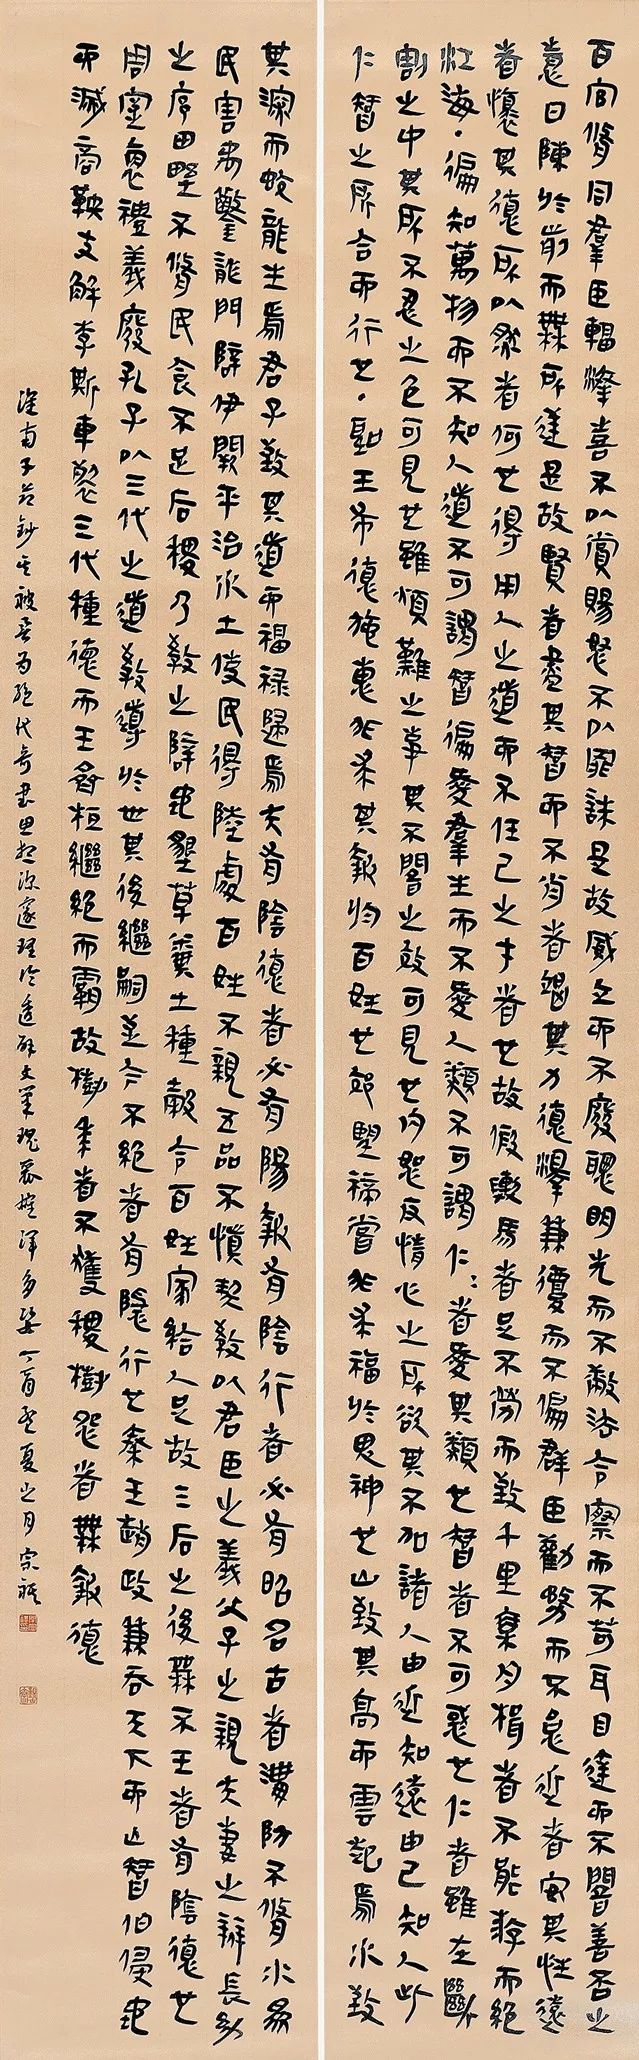 百官脩同羣臣輻湊喜不以賞賜怒不以罪誅是故威立而不廢聰明光而不蔽法令察而不苛耳目達而不闇善否之
意日陳於前而無所逆是故賢者盡其智而不肖者竭其力德澤兼覆而不偏群臣勸務而不怠近者安其性遠
者懷其德所以然者何也得用人之道而不任己之才者也故假輿馬者足不勞而致千里乘舟楫者不能游而絕
江海·徧知萬物而不知人道不可謂智徧愛羣生而不愛人類不可謂仁=者愛其類也智者不可惑也仁者雖在斷
割之中其所不忍之色可見也雖煩難之事其不闇之效可見也內恕反情心之所欲其不加諸人由近知遠由己知人此
仁智之所合而行也·聖王布德施惠非求其報於百姓也郊望禘嘗非求福於鬼神也山致其高而雲起焉水致
其深而蛟龍生焉君子致其道而福祿歸焉夫有陰德者必有陽報有陰行者必有昭名古者溝防不脩水為
民害禹鑿龍門辟伊闕平治水土使民得陸處百姓不親五品不慎契教以君臣之義父子之親夫妻之辨長幼
之序田野不脩民食不足后稷乃教之辟地墾草糞土種穀令百姓家給人足故三后之後無不王者有陰德也
周室衰禮義廢孔子以三代之道教導於世其後繼嗣至今不絕者有隱行也秦王趙政兼吞天下而亡智伯侵地
而滅商鞅支解李斯車裂三代種德而王齊桓繼絕而霸故樹黍者不獲稷樹怨者無報德
淮南子節鈔其被為絕代奇書思想深邃理論透辟文筆瑰麗渾多姿丁酉孟夏之月宗祺